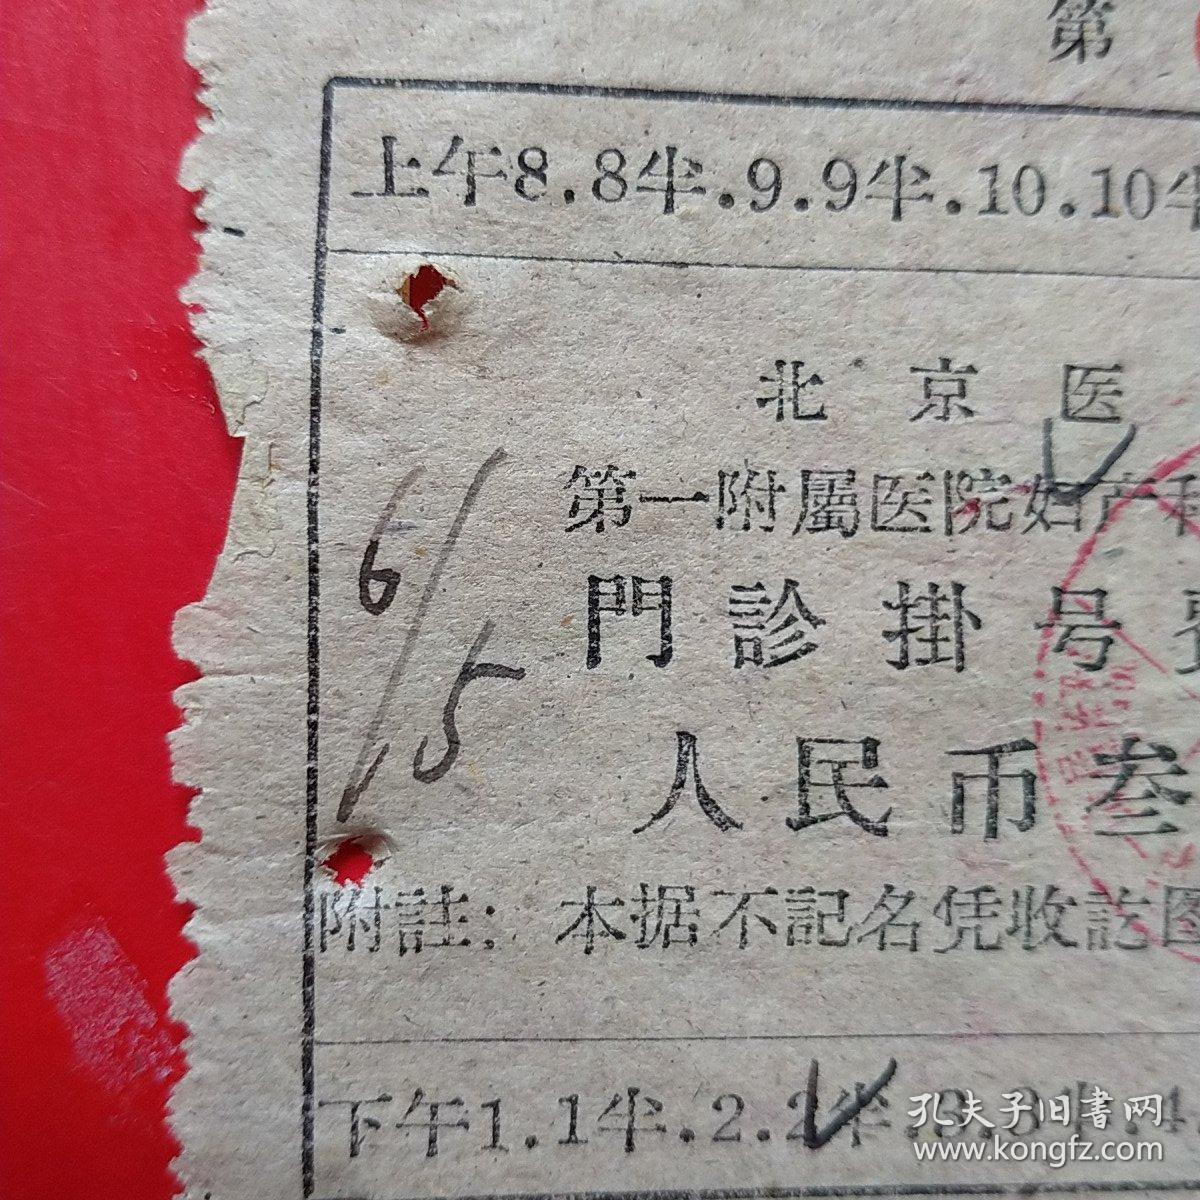 第
上午8.8半.9.9半.10.10半
北京医
第一附屬医院妇产科
6/5
門診掛号費
人民币叁
附註: 本据不記名凭收訖图
下午1.1半.2.2半.3.3半.4
孔夫子旧書网
www.kongfz.com